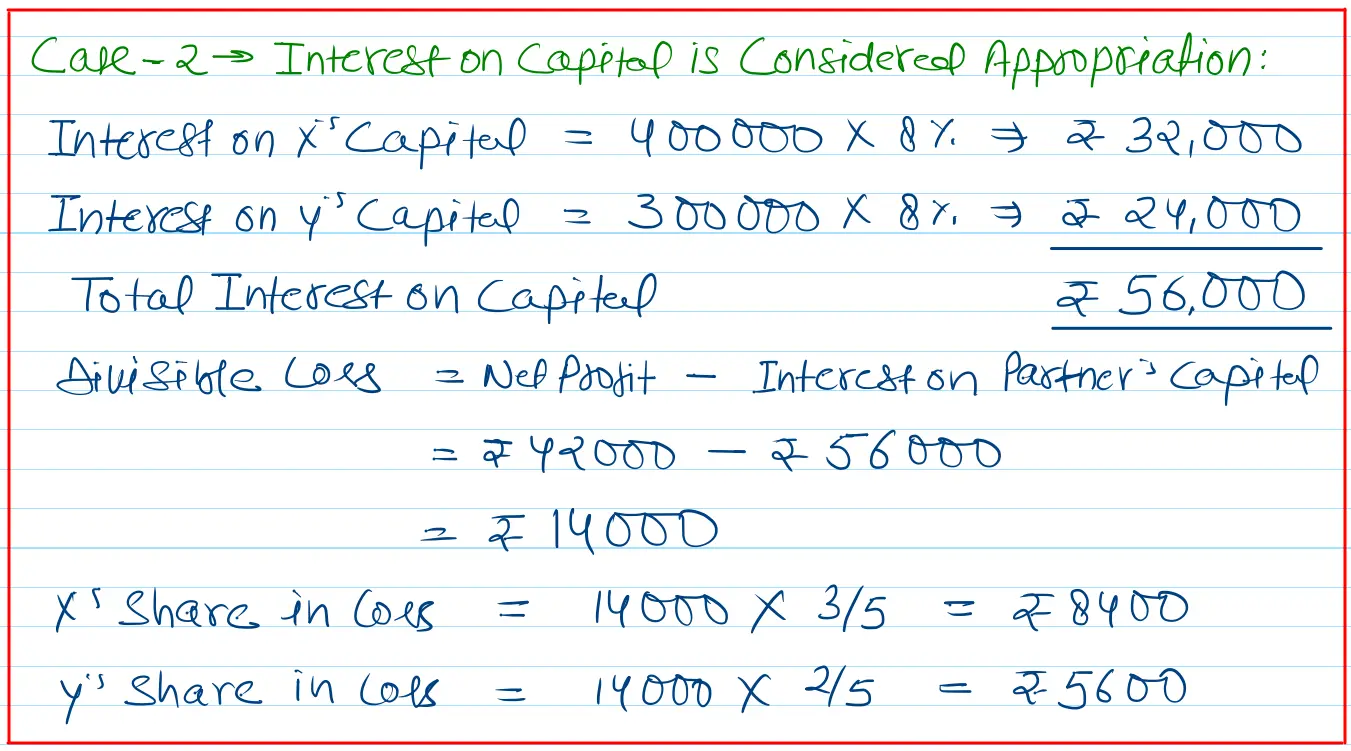 Case-2 → Interest on Capital is Considered Appropriation:
Interest on X's Capital = 400000 X 8% ⇒ ₹ 32,000
Interest on Y's Capital = 300000 X 8% ⇒ ₹ 24,000
Total Interest on Capital ₹ 56,000
Divisible Loss = Net Profit - Interest on Partner's Capital
= ₹ 42000 - ₹ 56000
= ₹ 14000
X's Share in Loss = 14000 X 3/5 = ₹ 8400
Y's Share in Loss = 14000 X 2/5 = ₹ 5600